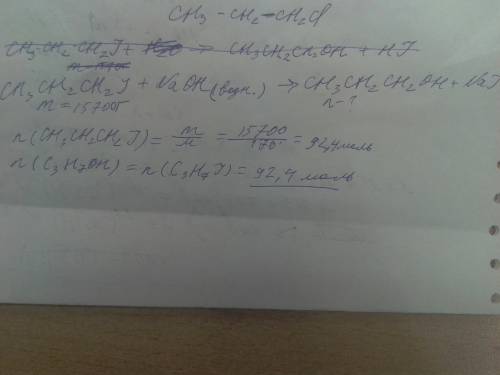 CH₃ - CH₂ - CH₂Cl
CH₃-CH₂-CH₂J + H₂O → CH₃CH₂CH₂OH + HJ
CH₃CH₂CH₂J + NaOH (водн.) → CH₃CH₂CH₂OH + NaJ
m = 15700г n - ?
n(CH₃CH₂CH₂J) = m/M = 15700/170 = 92,4 моль
n(C₃H₇OH) = n(C₃H₇J) = 92,4 моль